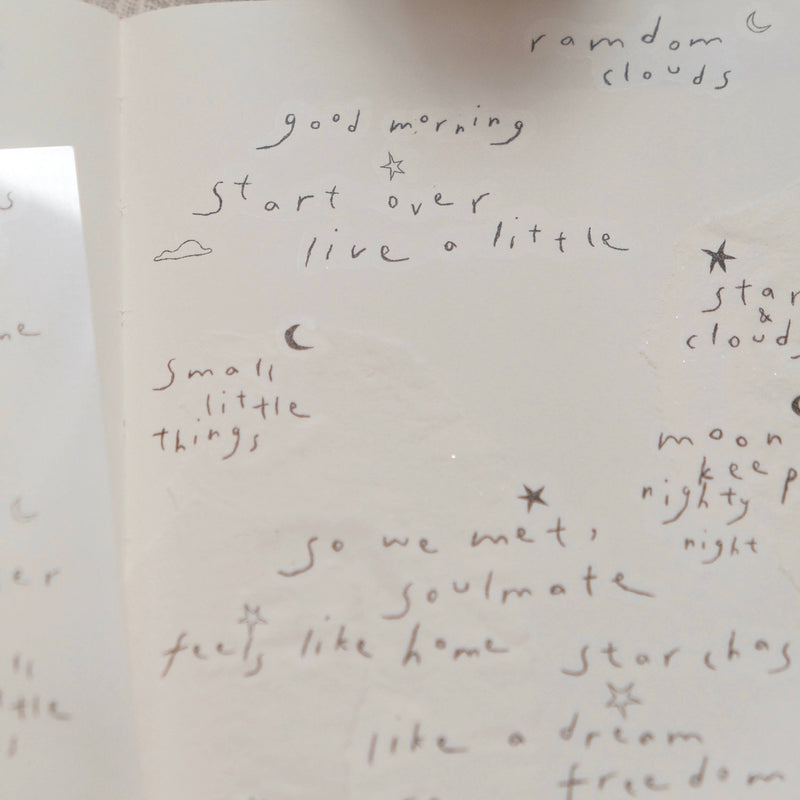 ramdom
clouds
good morning
start over
live a little
star
&
clouds
small
little
things
moon
keep
nighty
night
so we met,
soulmate
feels like home
star chas
like a dream
freedom